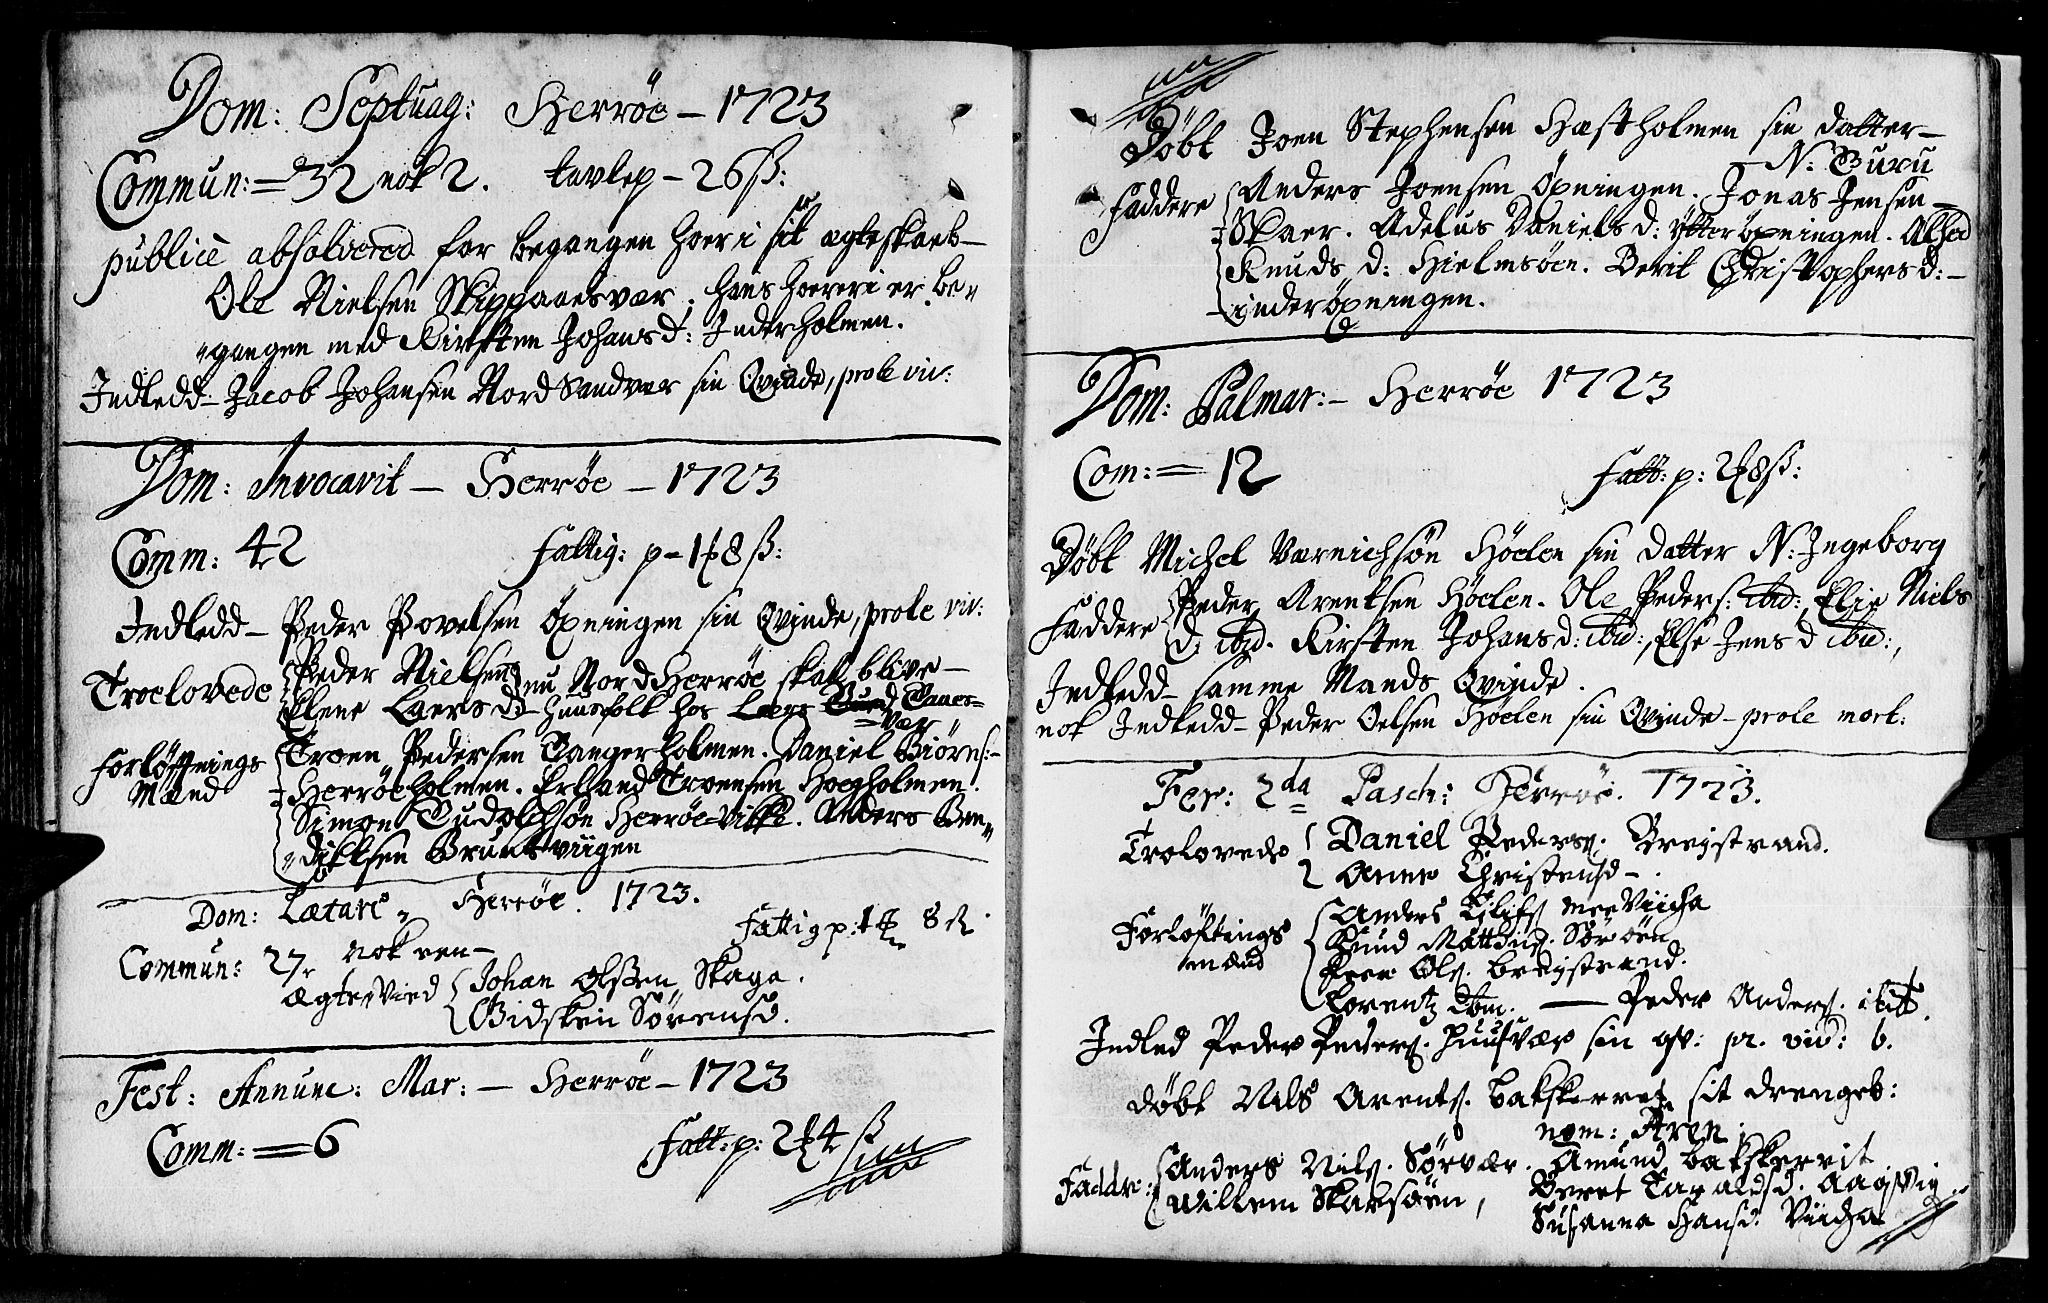 Dom: Septuag: Herröe – 1723
Commun: = 32 nok 2. tavlep – 26 ß:
publicè absolvered for begangen hoer i sit ægteskab –
Ole Nielsen Skippaaesvær. hans hoereri er be„
„gangen med Kirsten Johansd: Inderholmen.
Indledd – Jacob Johansen Nord Sandvær sin Qvinde, prole viv:
Dom: Invocavit – Herröe – 1723
Comm: 42 Fattig: p – 1 8 ß:
Indledd – Peder Povelsen Öpningen sin Qvinde, prole viv:
Troelovede Peder Nielsen nu Nord Herröe skal blive –
Elene Laersd: huusfolk hos Laers Tanes=
=vær„
Forlöfnings Troen Pedersen Tangerholmen. Daniel Biörns: –
Mænd Herröeholmen. Erland Troensen Hoegholmen.
Simon Rudolchsön Herröe=Vikke. Anders Ben„
„dixtsen Bruntsviigen
Dom: Lætare„ Herröe. 1723.
Fattig p: 1 8 ß.
Commun: 27. nok een –
Ægtevied Johan Olssen Skaga.
Gidsken Sörensd.
Fest: Annunc: Mar: – Herröe – 1723
Comm: = 6 Fatt: p: 2 4 ß
Döbt Joen Stephensen Hæstholmen sin datter –
N: Guru
Faddere Anders Joensen Öpningen. Jonas Jensen –
Skaer. Adelus Daniels d: Ytteröpningen.
Knuds d: Hielmsöen. Berit Christophersd: –
inderöpningen.
Dom: Palmar: – Herröe 1723
Com: = 12 Fatt: p: 2 8 ß:
Döbt Michel Værnichsön Höelen sin datter N: Ingeborg
Faddere Peder Arentsen Höelen. Ole Peders: ibid: Elie Niels
d: ibid. Kirsten Johansd: ibid:, Else Jens d ibid:,
Indledd – samme Mands Qvinde.
nok Indledd – Peder Oelsen Höelen sin Qvinde – prole mort:
Fer: 2da Pasch: Herröe: 1723.
Trolovede Daniel Peders. Breystrand.
Anne Christensd –.
Forlöftings Anders
mænd Knud Sör öen
Peer Ols. breystrand.
Lorentz Peder Anders. ibid.
Indled Peder Peders. Huusvær sin qv: pr.
döbt Nils Arents. bakskerret sit drengeb:
nom: Aren.
Faddr: Anders Nils. Sörvær. Amund bakskerrit
Willem Skarsöen, Beret Taraldsd.
Susanna Hansd. Viicha